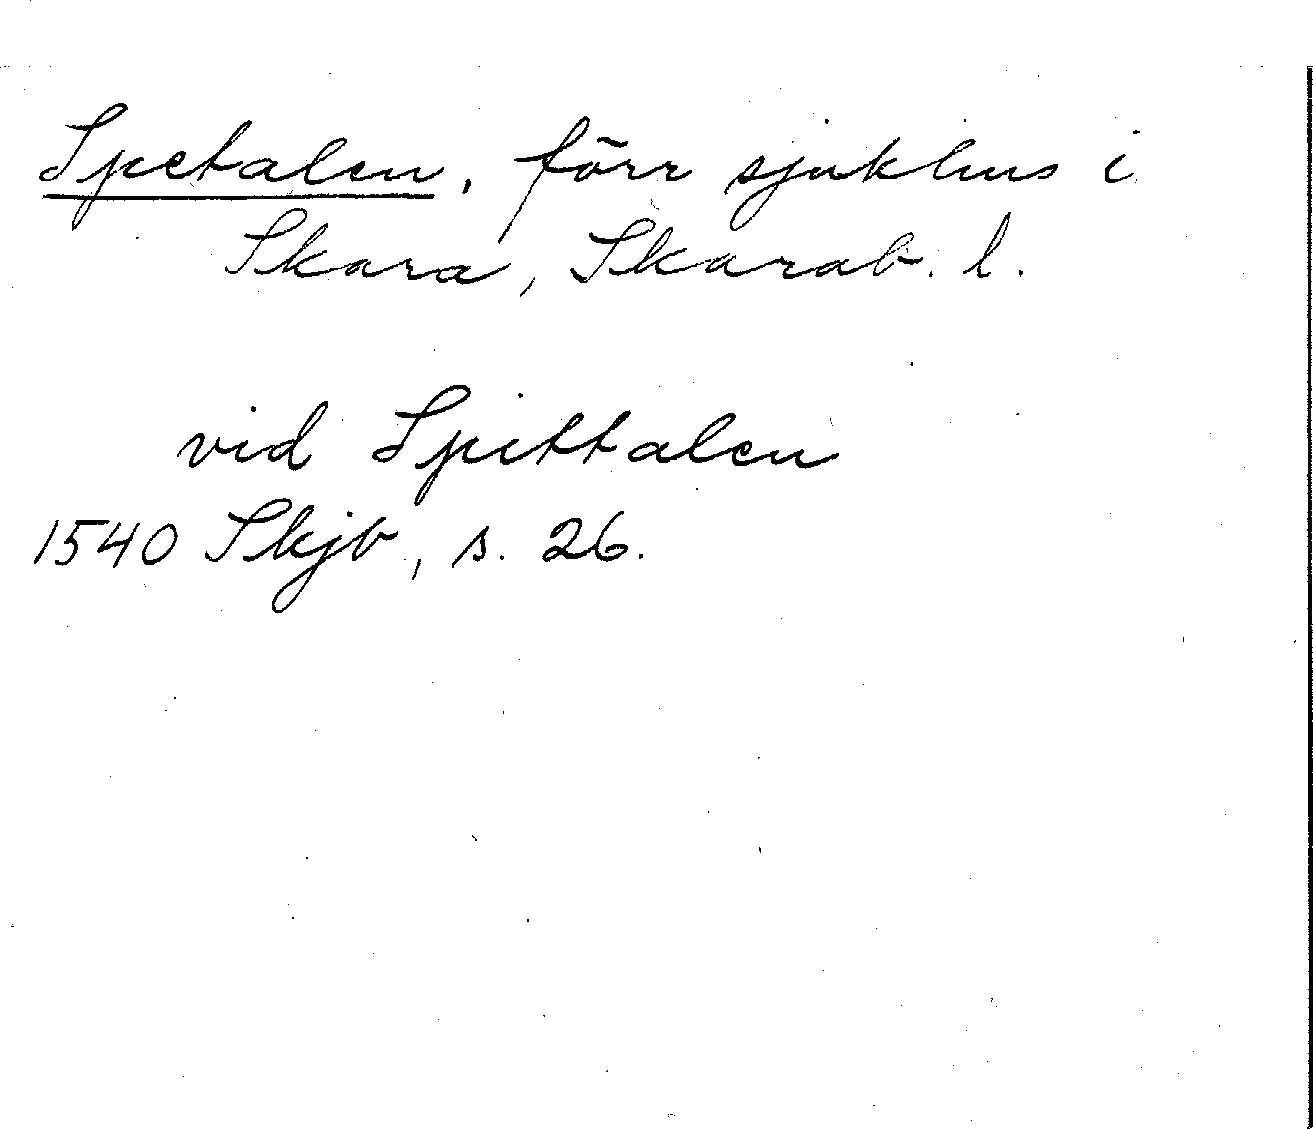 Spetalen, förr sjukhus i
Skara, Skarab. l.
vid Spittalen
1540 Skjb, s. 26.